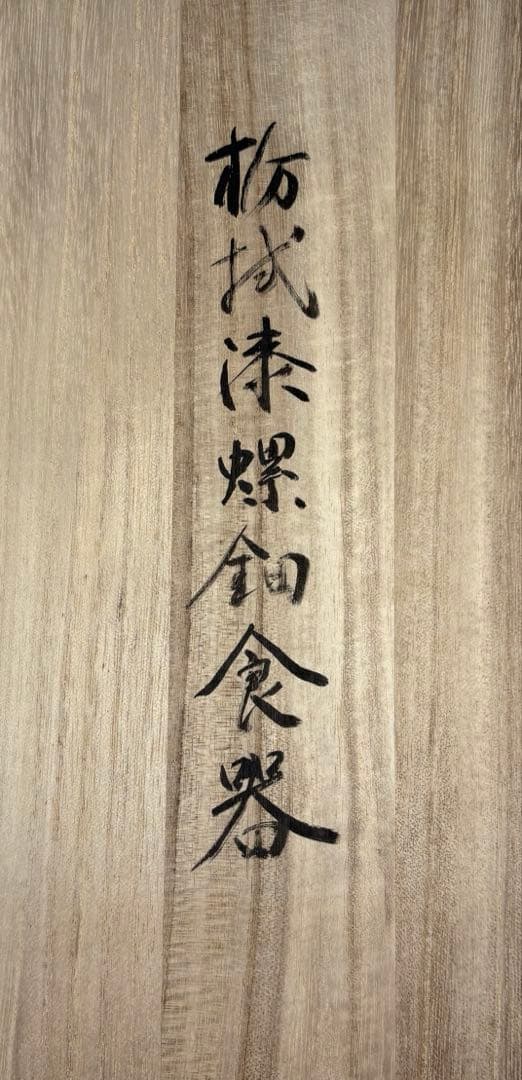 栃拭漆螺鈿食器